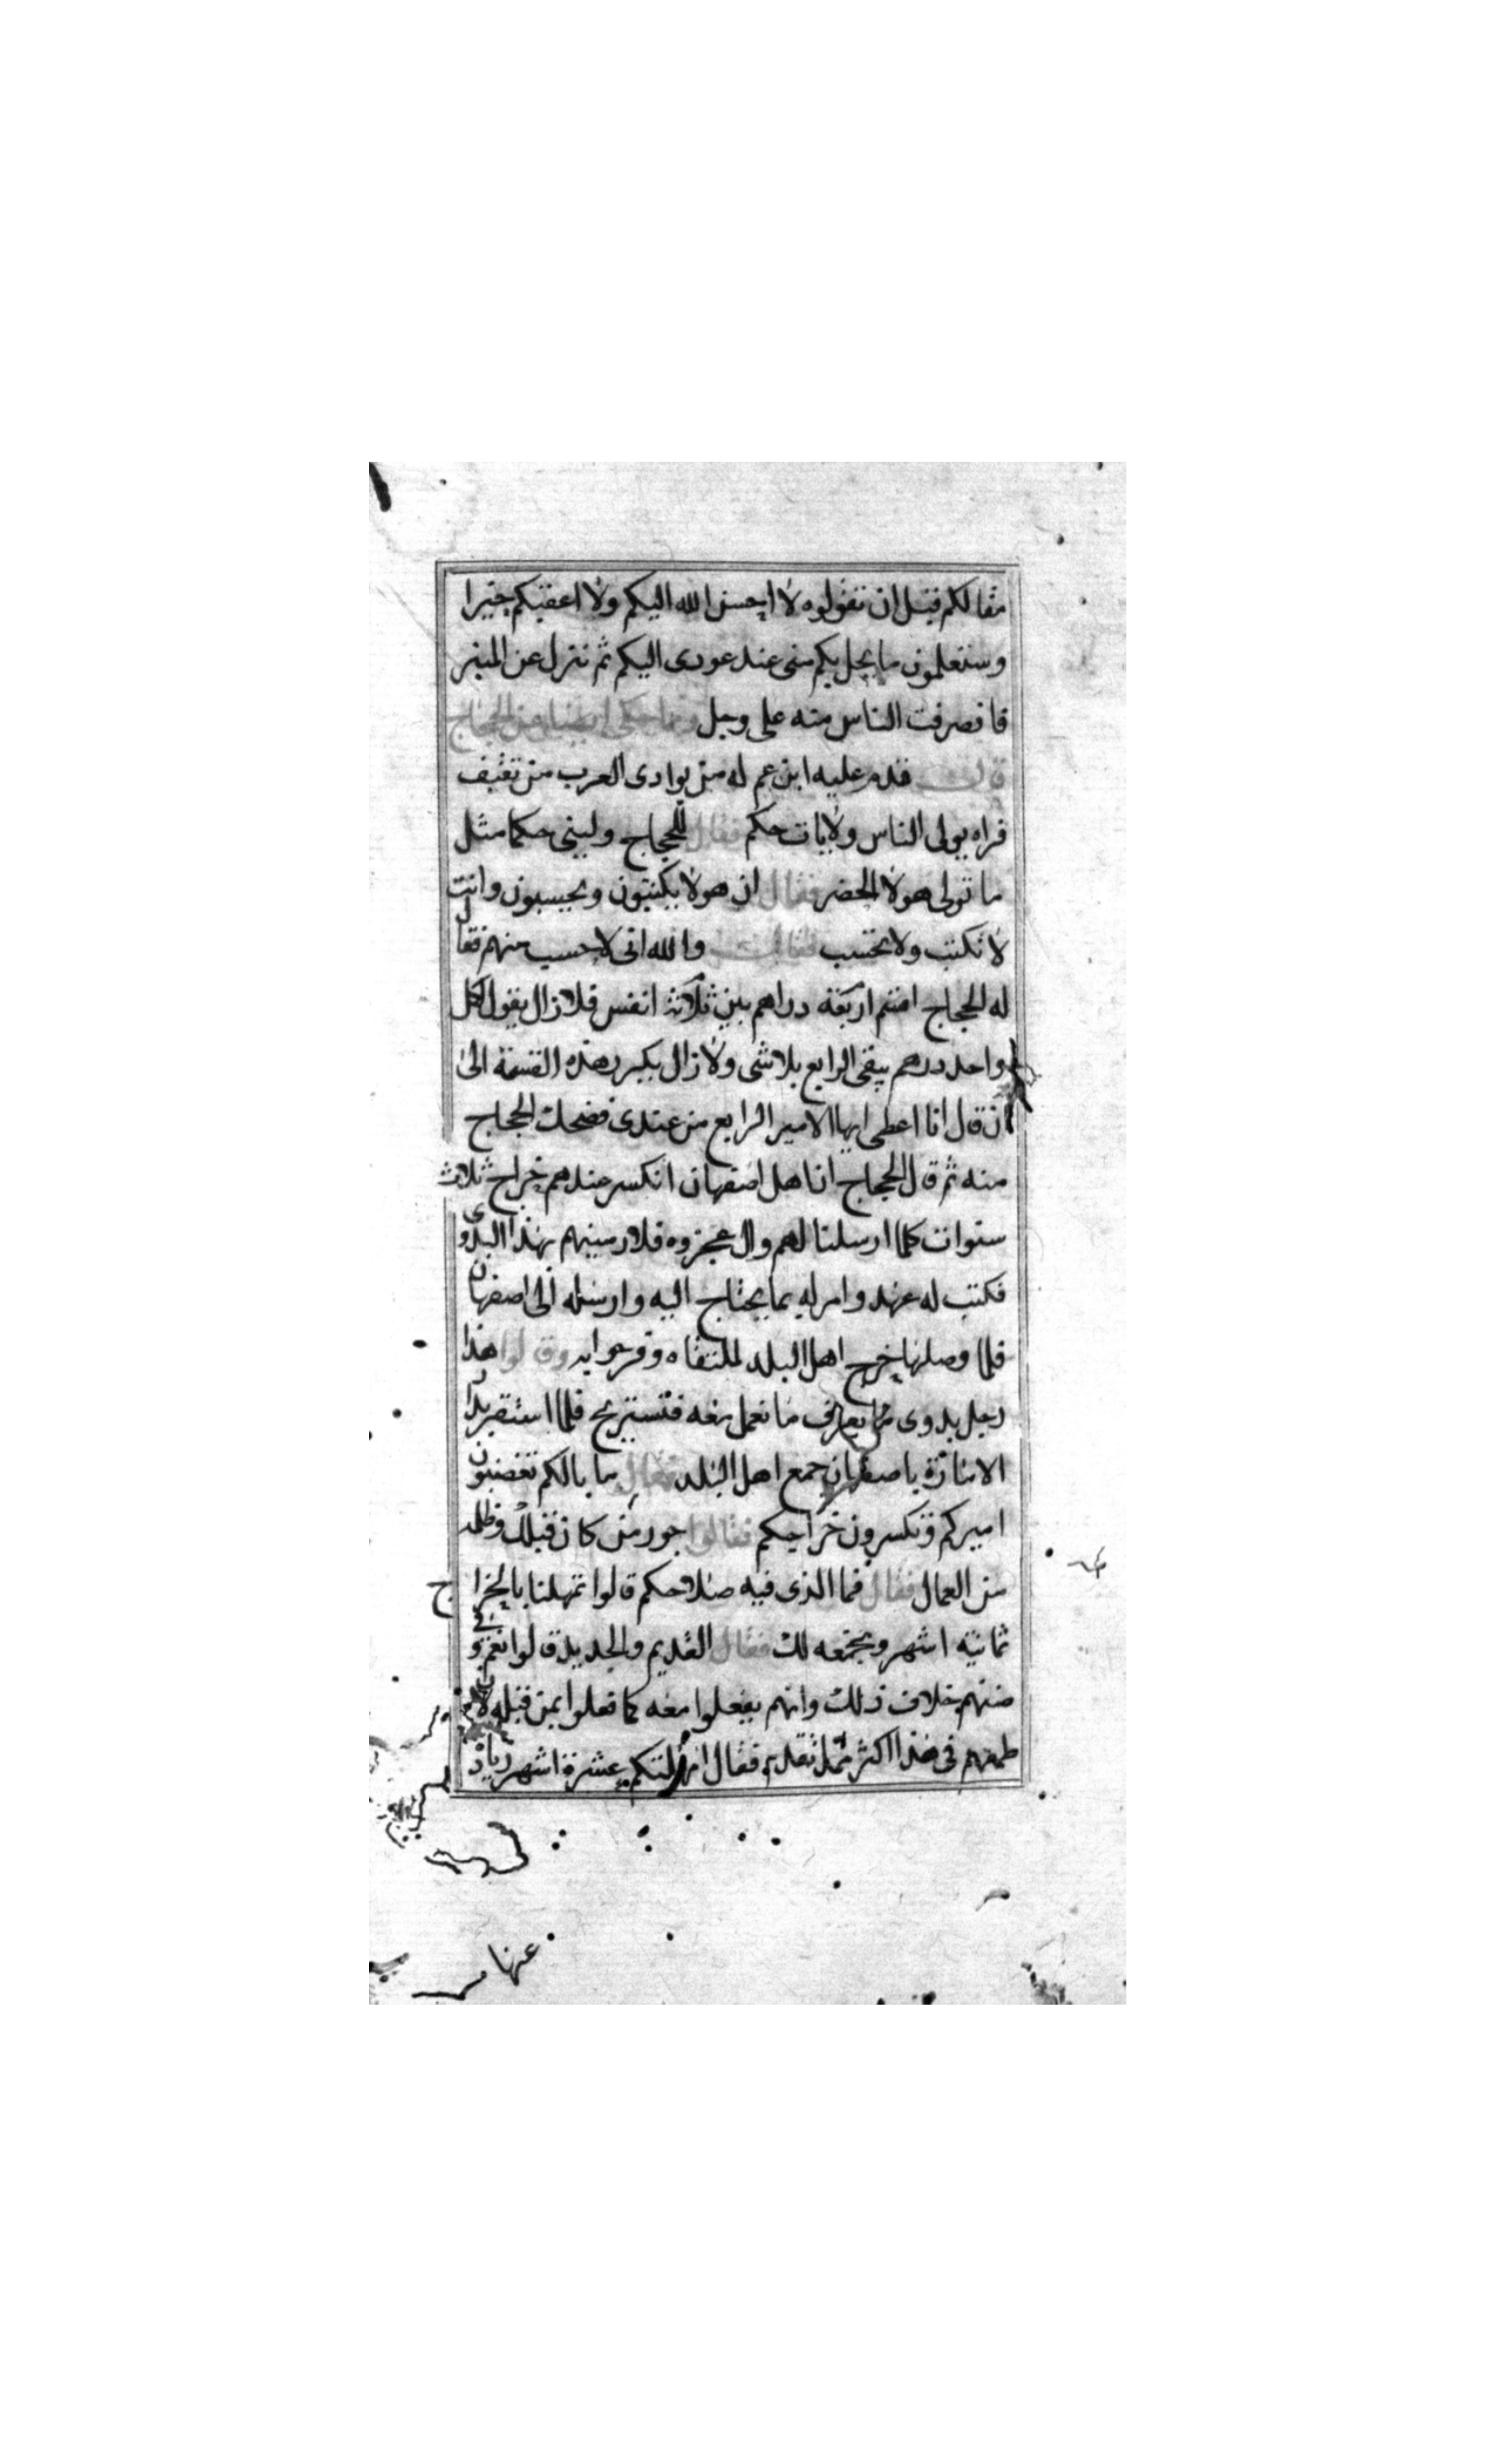 مقالكم قبل ان تقولوه لا احسن الله اليكم ولا اعقبكم خيرا
وستعلمون ما يحل بكم منى عند عودى اليكم ثم نزل عن المنبر
فانصرفت الناس منه على وجل ومما حكى ايضا عن الحجاج
قال قدم عليه ابن عم له من بوادى العرب من ثقيف
فراه يولى الناس ولايات حكم فقال للحجاج ولينى حكما مثل
ما تولى هولا الحضر فقال ان هولا يكتبون ويحسبون وانت
لا تكتب ولا تحتسب فقال والله انى لاحسب منهم فقال
له الحجاج اقسم اربعة دراهم بين ثلاثة انفس فلا زال يقول لكل
واحد درهم يبقى الرابع بلا شى ولا زال يكرر هذه القسمة الى
ان قال انا اعطى ايها الامير الرابع من عندى فضحك الحجاج
منه ثم قال الحجاج ان اهل اصفهان انكسر عندهم خراج ثلاث
سنوات كلما ارسلنا لهم وال عجزوه فلارمينهم بهذا البدوى
فكتب له عهد وامر له بما يحتاج اليه وارسله الى اصفهان
فلما وصلها خرج اهل البلد لملتقاه وفرحوا به وقالوا هذا
رجل بدوى ما يعرف ما نعمل معه فنستريح فلما استقر بدار
الامارة باصفهان جمع اهل البلد فقال ما بالكم تغضبون
اميركم وتكسرون خراجكم فقالوا جور من كان قبلك وظلمه
من العمال فقال فما الذى فيه صلاحكم قالوا تمهلنا بالخراج
ثمانية اشهر ونجمعه لك فقال القديم والجديد قالوا نعم وفى
ضنهم خلاف ذلك وانهم يفعلوا معه كما فعلوا بمن قبله لان
طمعهم فى هذا اكثر ممن تقدم فقال امهلتكم عشرة اشهر زيادة
عنها